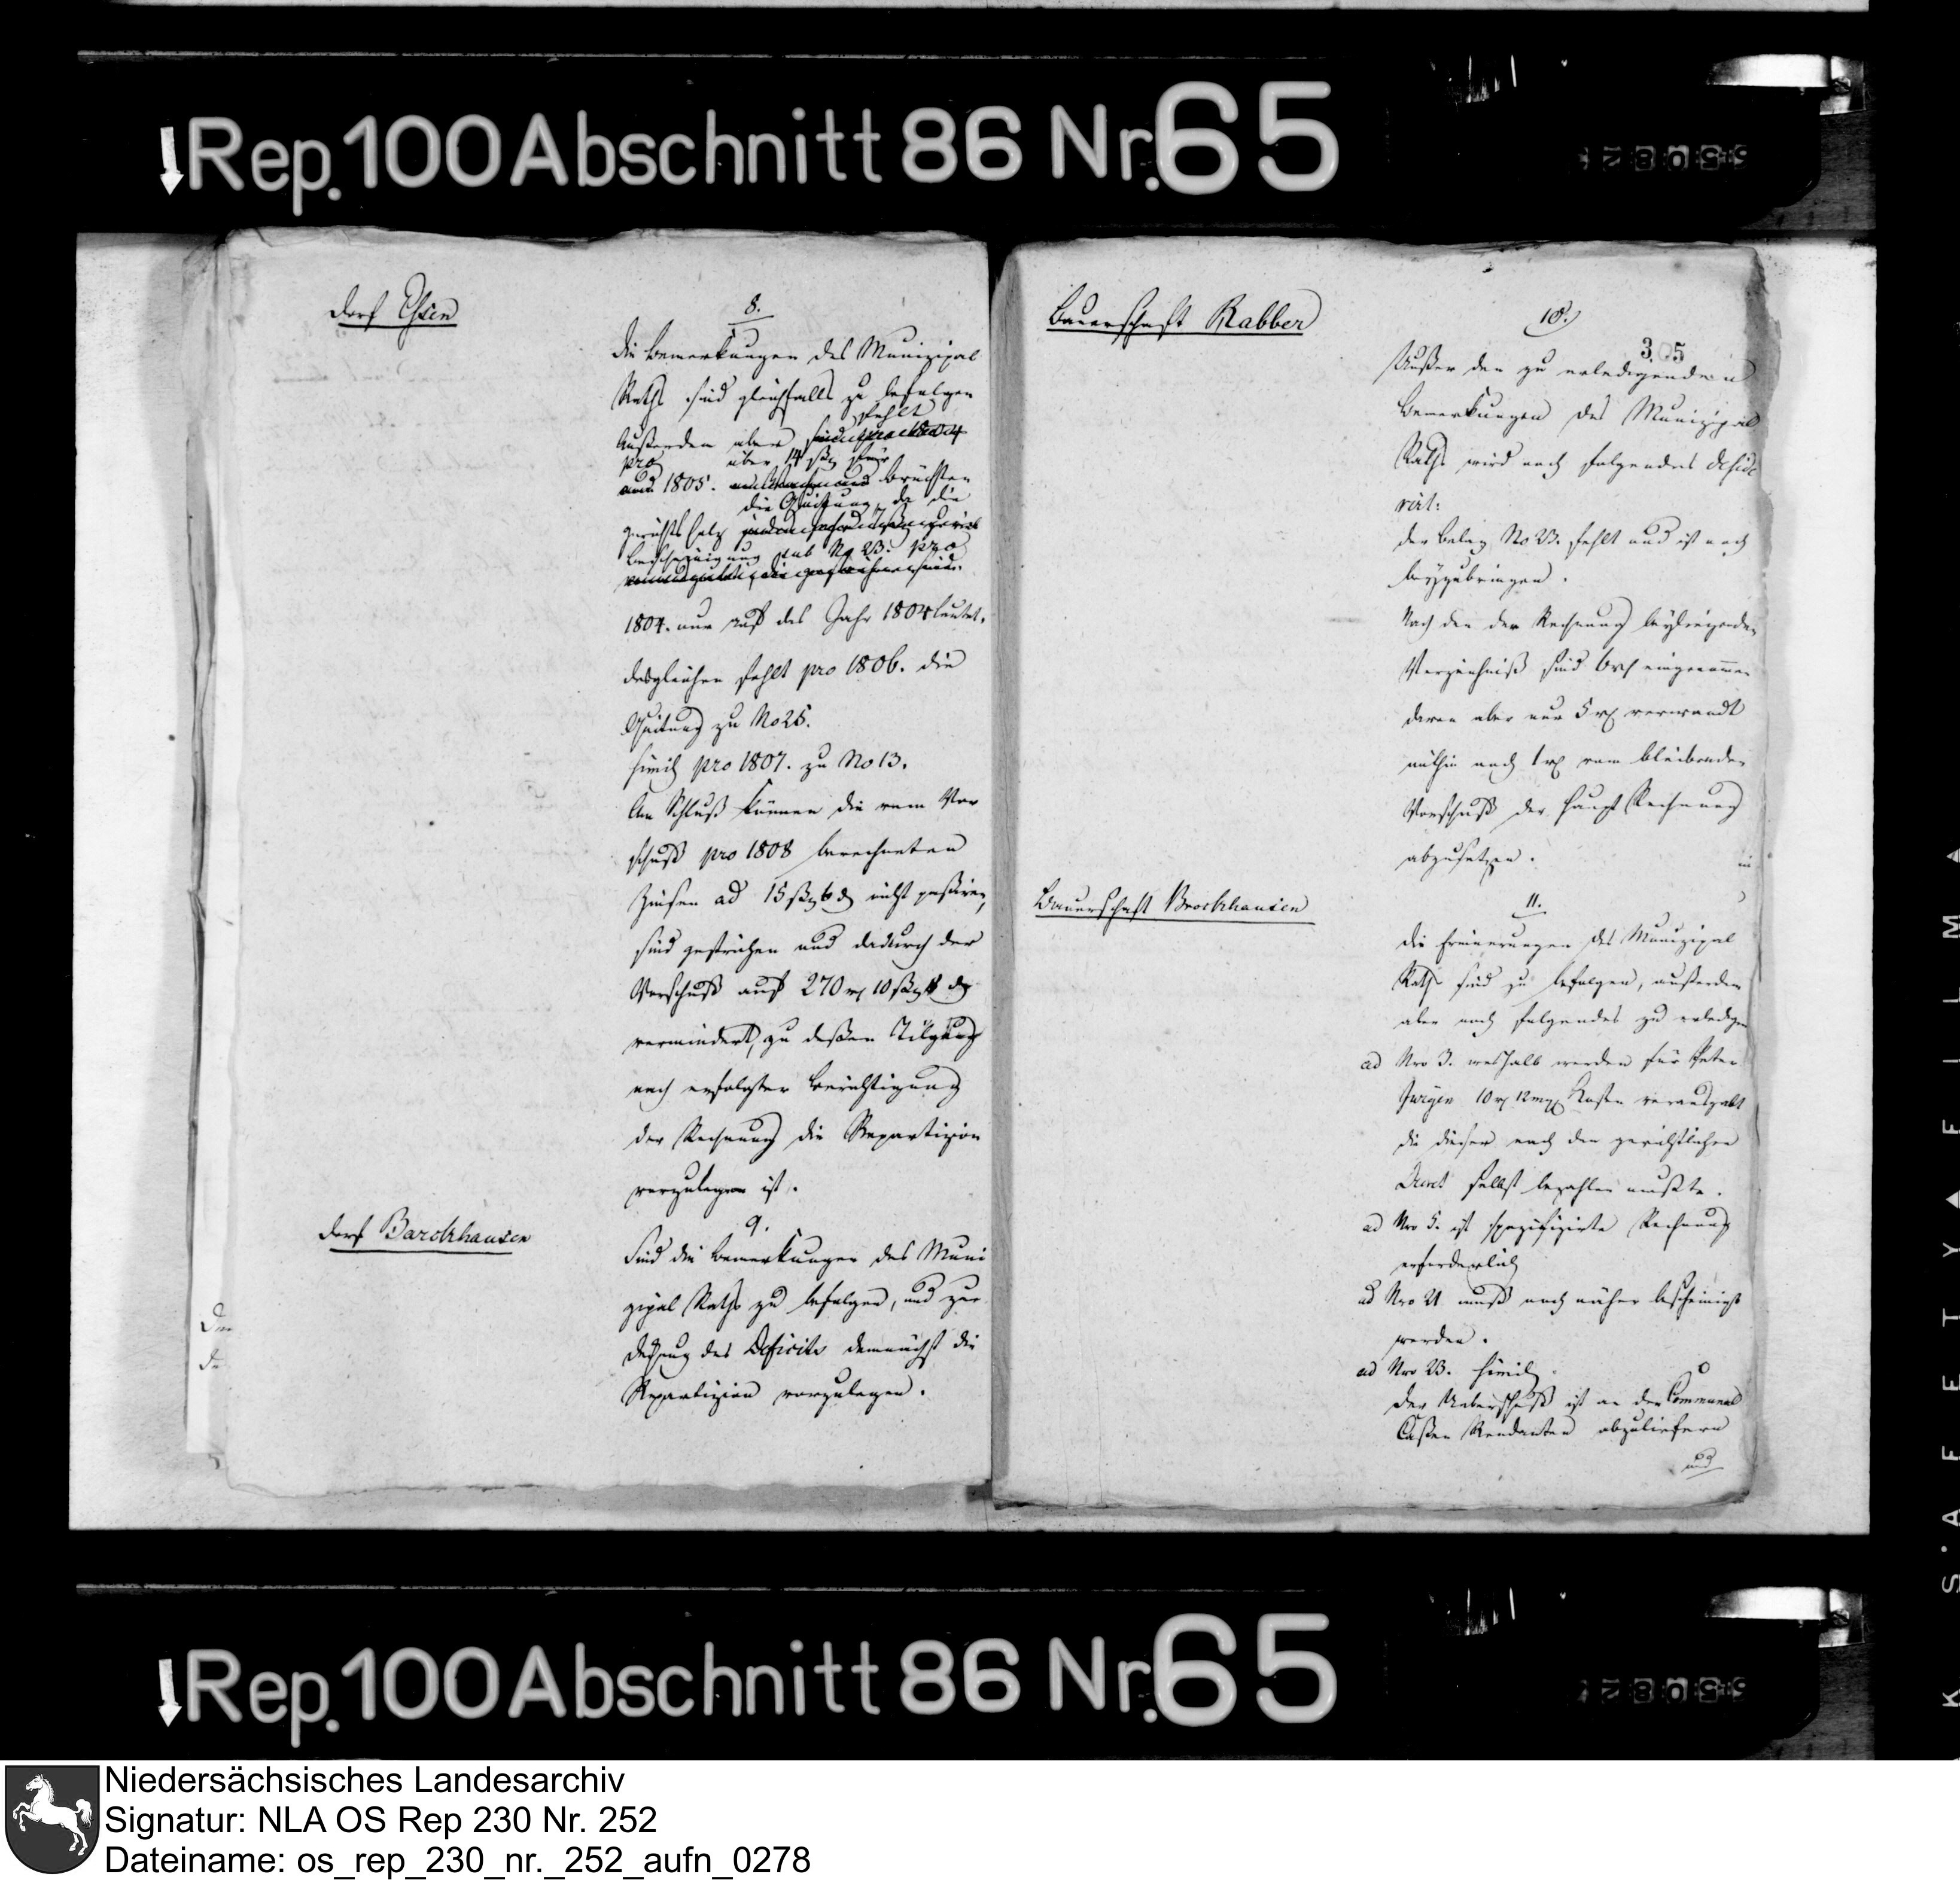 Rep. 100 Abschnitt 86 Nr. 65
Dorf Essen
8.
Die Bemerkungen des Munizipal
Raths sind gleichfalls zu befolgen
fehlt
Außerdem aber sind pro 1804
pro über 14 ßg für
und 1805. Brüchten
die Quitung, da die
gerichts holz
Bescheinigung sub No 23. pro
1804. nur auf das Jahr 1804 lautet.
desgleichen fehlt pro 1806. die
Quitung zu No 25.
simili pro 1807. zu No 13.
Am Schluß können die vom Vor
schuß pro 1808 berechneten
Zinsen ad 15 ßg 6 d nicht paßiren,
sind gestrichen und dadurch der
Vorschuß auf 270 rh 10 ßg d
vermindert, zu deßen Tilgung
nach erfolgter Berichtigung
der Rechnung die Repartizion
vorzulegen ist.
Dorf Barckhausen
9.
Sind die Bemerkungen des Muni
zipal Raths zu befolgen, und zur
Deckung des Deficits demnächst die
Repartizion vorzulegen.
Bauerschaft Rabber
10.
305
Außer den zu erledigenden
Bemerkungen des Munizipal
Raths wird noch folgendes deside
rirt:
der Beleg No 23. fehlt und ist noch
beyzubringen.
Nach den der Rechnung beyliegenden
Verzeichniß sind 6 rh eingenommen
davon aber nur 5 rh verwandt
mithin noch 1 rh vom bleibenden
Vorschuß der Haupt Rechnung
abzusetzen.
Bauerschaft Brockhausen
11.
Die Erinnerungen des Munizipal
Raths sind zu befolgen, außerdem
aber noch folgendes zu erledigen
ad Nro 3. weshalb werden für Peter
Jürgen 10 rh 12 mgr Kosten verausgabt
die dieser nach den gerichtlichen
Decret selbst bezahlen mußte.
ad Nro 5. ist spezifizirte Rechnung
erforderlich
ad Nro 21 muß noch näher bescheinigt
werden.
ad Nro 23. simili
Der Ueberschuß ist an den Communal
Caßen Rendanten abzuliefern
und
Rep. 100 Abschnitt 86 Nr. 65
Niedersächsisches Landesarchiv
Signatur: NLA OS Rep 230 Nr. 252
Dateiname: os_rep_230_nr._252_aufn_0278